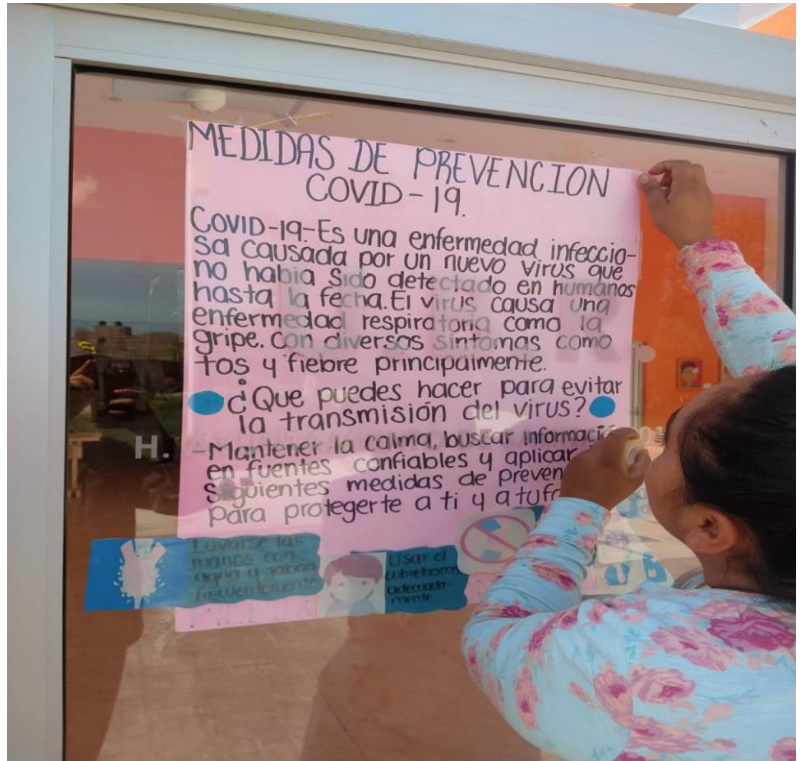 MEDIDAS DE PREVENCION
COVID-19.
COVID-19-Es una enfermedad infeccio-
sa causada por un nuevo virus que
no habia sido detectado en humanos
hasta la fecha. El virus causa una
enfermedad respiratoria como la
gripe. Con diversos sintomas como
tos y fiebre principalmente.
¿Que puedes hacer para evitar
la transmisión del virus?
-Mantener la calma, buscar informació
en fuentes confiables y aplicar
siguientes medidas de preven
para protegerte a ti y a tu fa
Lavarse las
manos con
agua y jabon
frecuentemente
Usar el
cubreboca
adecuada-
mente
H.